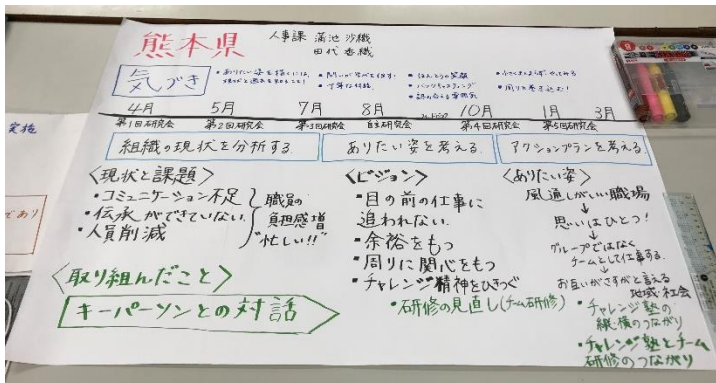 熊本県
人事課 満池 沙織
田代 香織
気づき
・ありたい姿を描くには、
現状と過去を知ること!
・問いが学びを促す!
・丁寧な対話
・ほんとうの笑顔
・バックキャスティング
・小さくともまず、やってみる
・周りを巻き込む!
4月 5月 7月 8月 10月 1月 3月
第1回研究会 第2回研究会 第3回研究会 自主研究会 第4回研究会 第5回研究会
組織の現状を分析する
ありたい姿を考える
アクションプランを考える
〈現状と課題〉
・コミュニケーション不足
・伝承ができていない
・人員削減
職員の
負担感増
"忙しい!!"
〈取り組んだこと〉
キーパーソンとの対話
〈ビジョン〉
・目の前の仕事に
追われない
・余裕をもつ
・周りに関心をもつ
・チャレンジ精神をひきつぐ
・研修の見直し(チーム研修)
〈ありたい姿〉
風通しがいい職場
↓
思いはひとつ!
↓
グループではなく
チームとして仕事する
↓
お互いがさすがと言える
地域・社会
・チャレンジ塾の
縦・横のつながり
・チャレンジ塾とチーム
研修のつながり
実施
であり